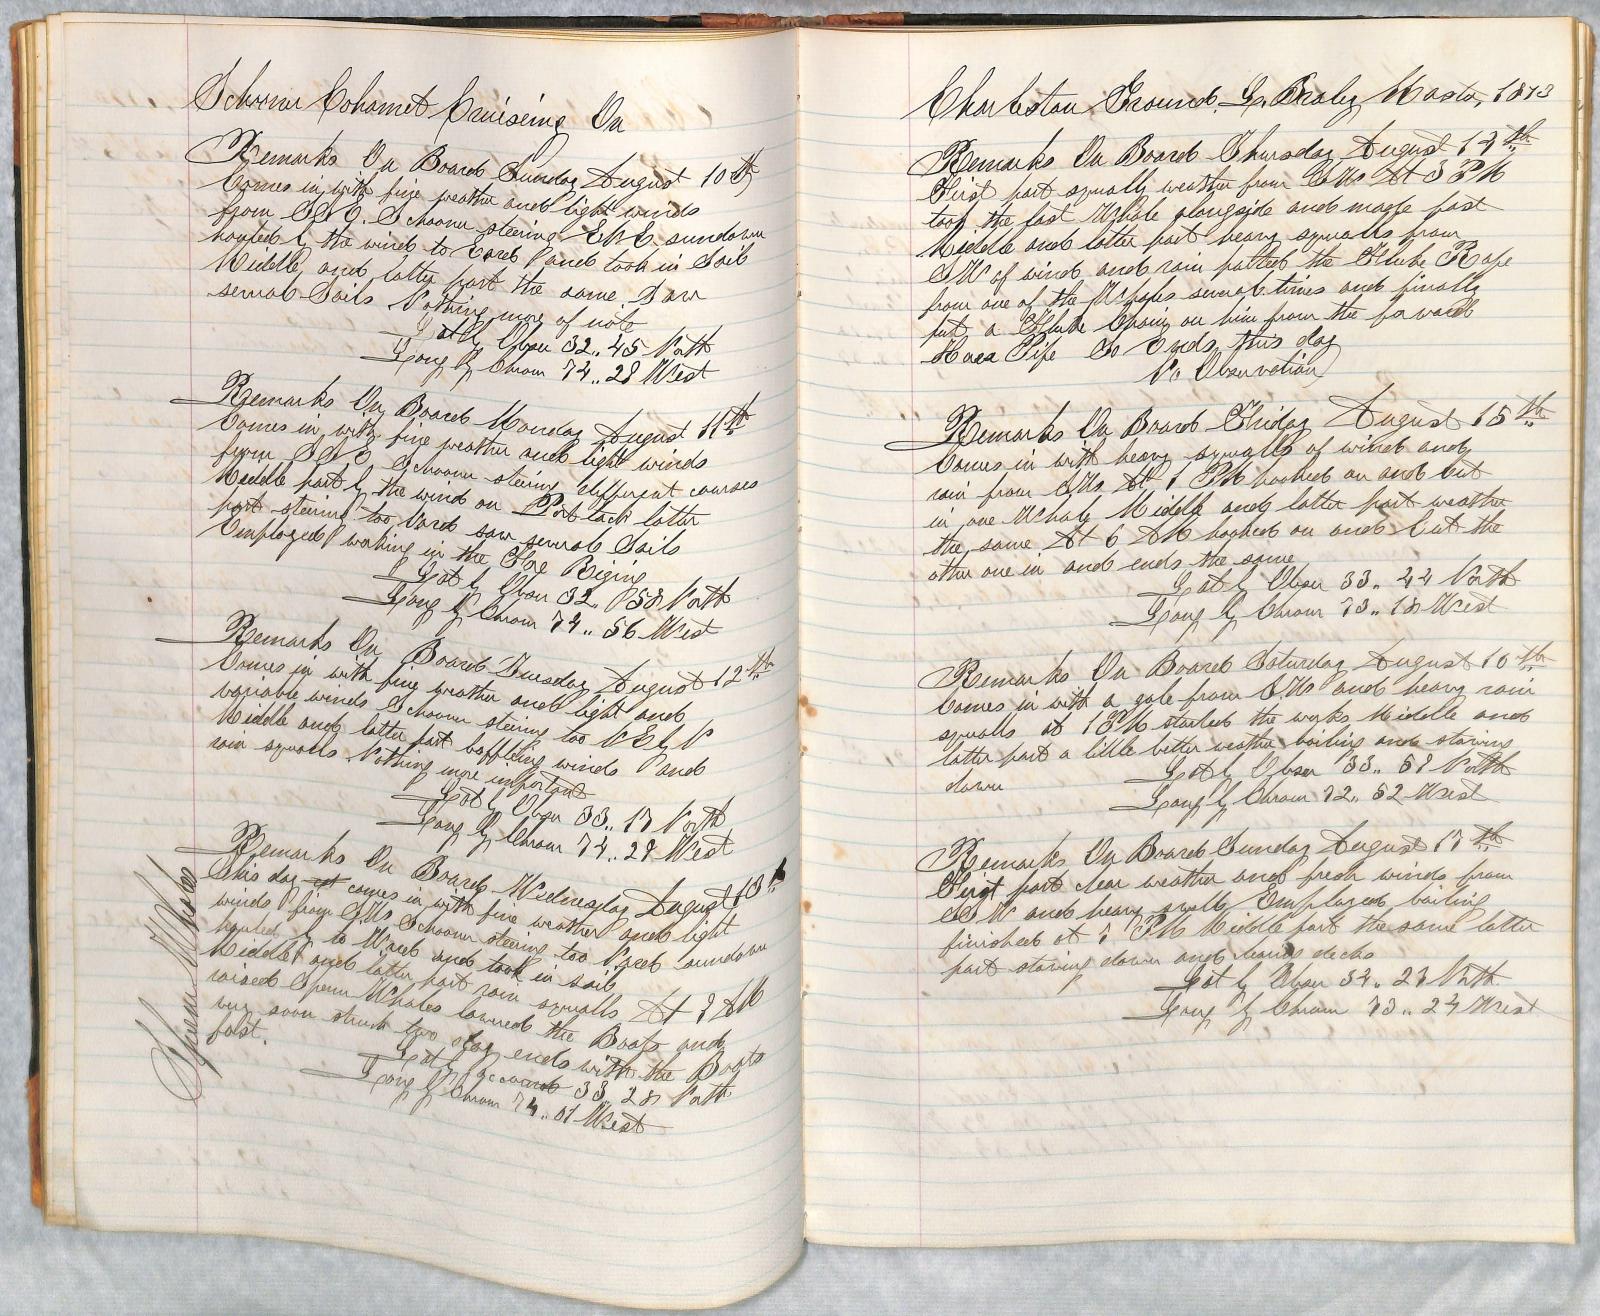 Schooner Cohannet Cruising On
Remarks On Board Sunday August 10th
Comes in with fine weather and light winds
from SSE. Schooner steering ENE sundown
hauled by the wind to Eard and took in Sail
Middle and latter part the same. Saw
several Sails Nothing more of note
Lat by Obser 32.. 45 North
Long by Chrom 74.. 28 West
Remarks On Board Monday August 11th
Comes in with fine weather and light winds
from SSE Schooner steering different courses
Middle part by the wind on Port tack latter
part steering too Nard saw several Sails
Employed working in the Fore Riging
Lat by Obser 32.. 58 North
Long by Chrom 74.. 56 West
Remarks On Board Tuesday August 12th
Comes in with fine weather and light and
variable winds Schooner steering too NEbyN
Middle and latter part baffling winds and
rain squalls Nothing more important
Lat by Obser 33.. 17 North
Long by Chrom 74.. 29 West
Remarks On Board Wednesday August 13th
This day comes in with fine weather and light
winds from SW Schooner steering too Nard sundown
hauled by to Ward and took in sail
Middle and latter part rain squalls At 9 AM
raised Sperm Whales lowered the Boats and
very soon struck two so ends with the Boats
fast.
Lat by account 33 28 North
Long by Chrom 74.. 01 West
Sperm Whales
Charleston Ground. Braley Master, 1873
Remarks On Board Thursday August 14th
First part squally weather from SW At 3 PM
took the last Whale alongside and made fast
Middle and latter part heavy squalls from
SW of wind and rain parted the Fluke Rope
from one of the Whales several times and finally
put a Fluke Chain on him from the forward
Hawse Pipe So Ends this day
No Observation
Remarks On Board Friday August 15th
Comes in with heavy squalls of wind and
rain from SW At 1 PM hooked on and cut
in one Whale Middle and latter part weather
the same At 6 AM hooked on and cut the
other one in and ends the same
Lat by Obser 33.. 44 North
Long by Chrom 73.. 18 West
Remarks On Board Saturday August 16th
Comes in with a gale from SW and heavy rain
squalls at 1 PM started the works Middle and
latter part a little better weather boiling and stowing
down
Lat by Obser 33.. 59 North
Long by Chrom 72.. 52 West
Remarks On Board Sunday August 17th
First part clear weather and fresh winds from
SW and heavy swell Employed boiling
finished at 7 PM Middle part the same latter
part stowing down and decks
Lat by Obser 34.. 27 North
Long by Chrom 73.. 24 West